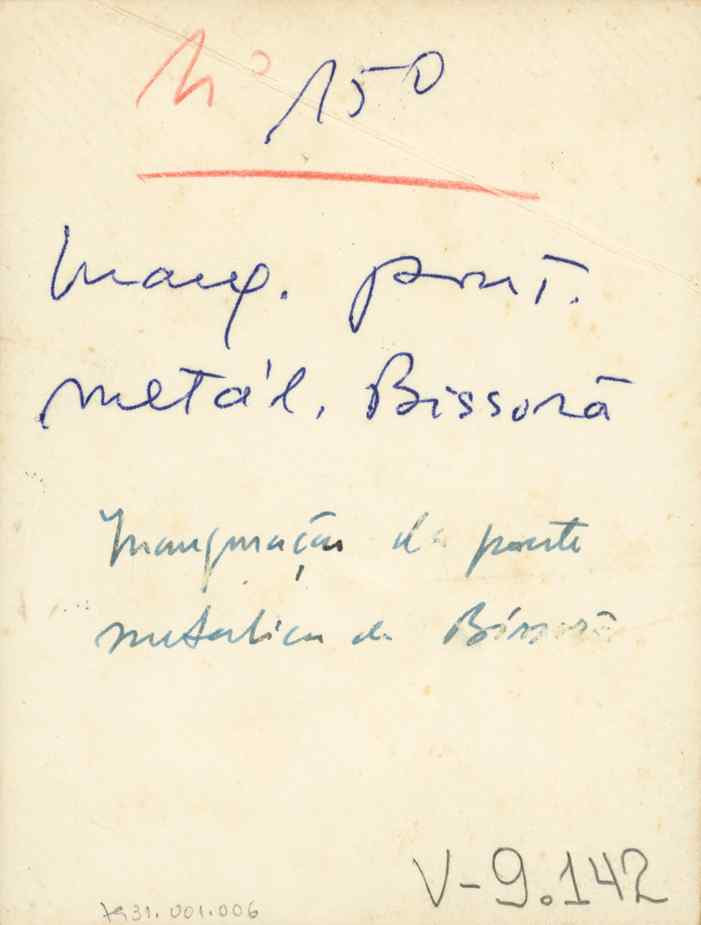 Nº 150
Inaug. pont.
metál. Bissorã
Inauguração da ponte
metalica de Bissorã
V-9.142
7931.001.006